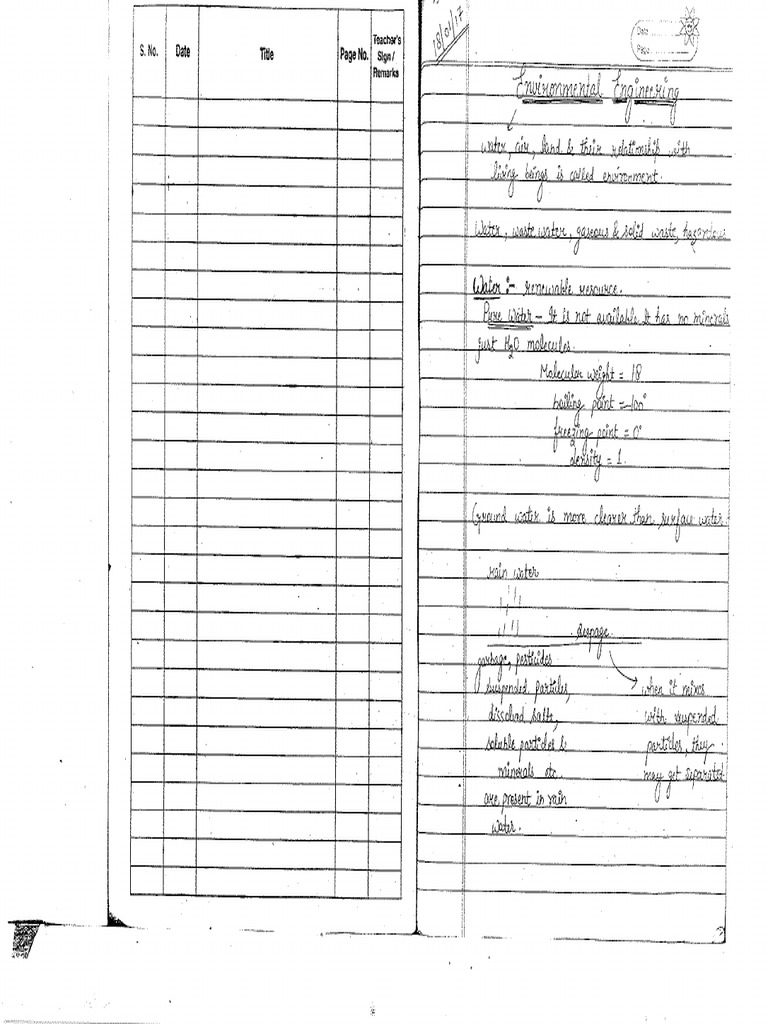 S. No.
Date
Title
Page No.
Teacher's
Sign /
Remarks
18/01/17
Date
Page
Environmental Engineering
water, air, land & their relationship with
living beings is called environment.
Water, waste water, gaseous & solid waste, hazardous
Water :- renewable resource.
Pure Water - It is not available. It has no minerals
just H2O molecules.
Molecular weight = 18
boiling point = 100°
freezing point = 0°
density = 1.
Ground water is more clearer than surface water.
rain water
seepage
garbage, pesticides
suspended particles,
dissolved salts,
soluble particles &
minerals etc.
are present in rain
water.
when it mixes
with suspended
particles, they
may get separated